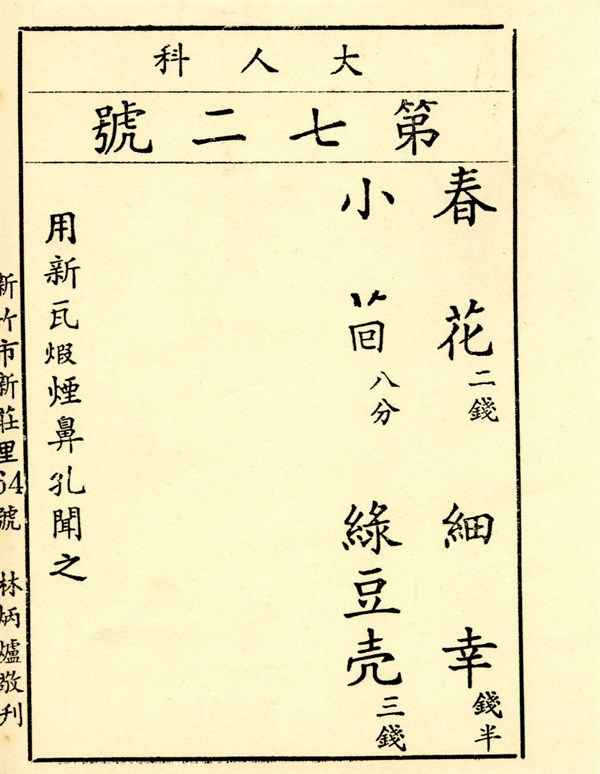 大人科
第七二號
春花二錢 細幸錢半
小茴八分 綠豆壳三錢
用新瓦煆煙鼻孔聞之
新竹市新莊里64號 林炳爐敬刋